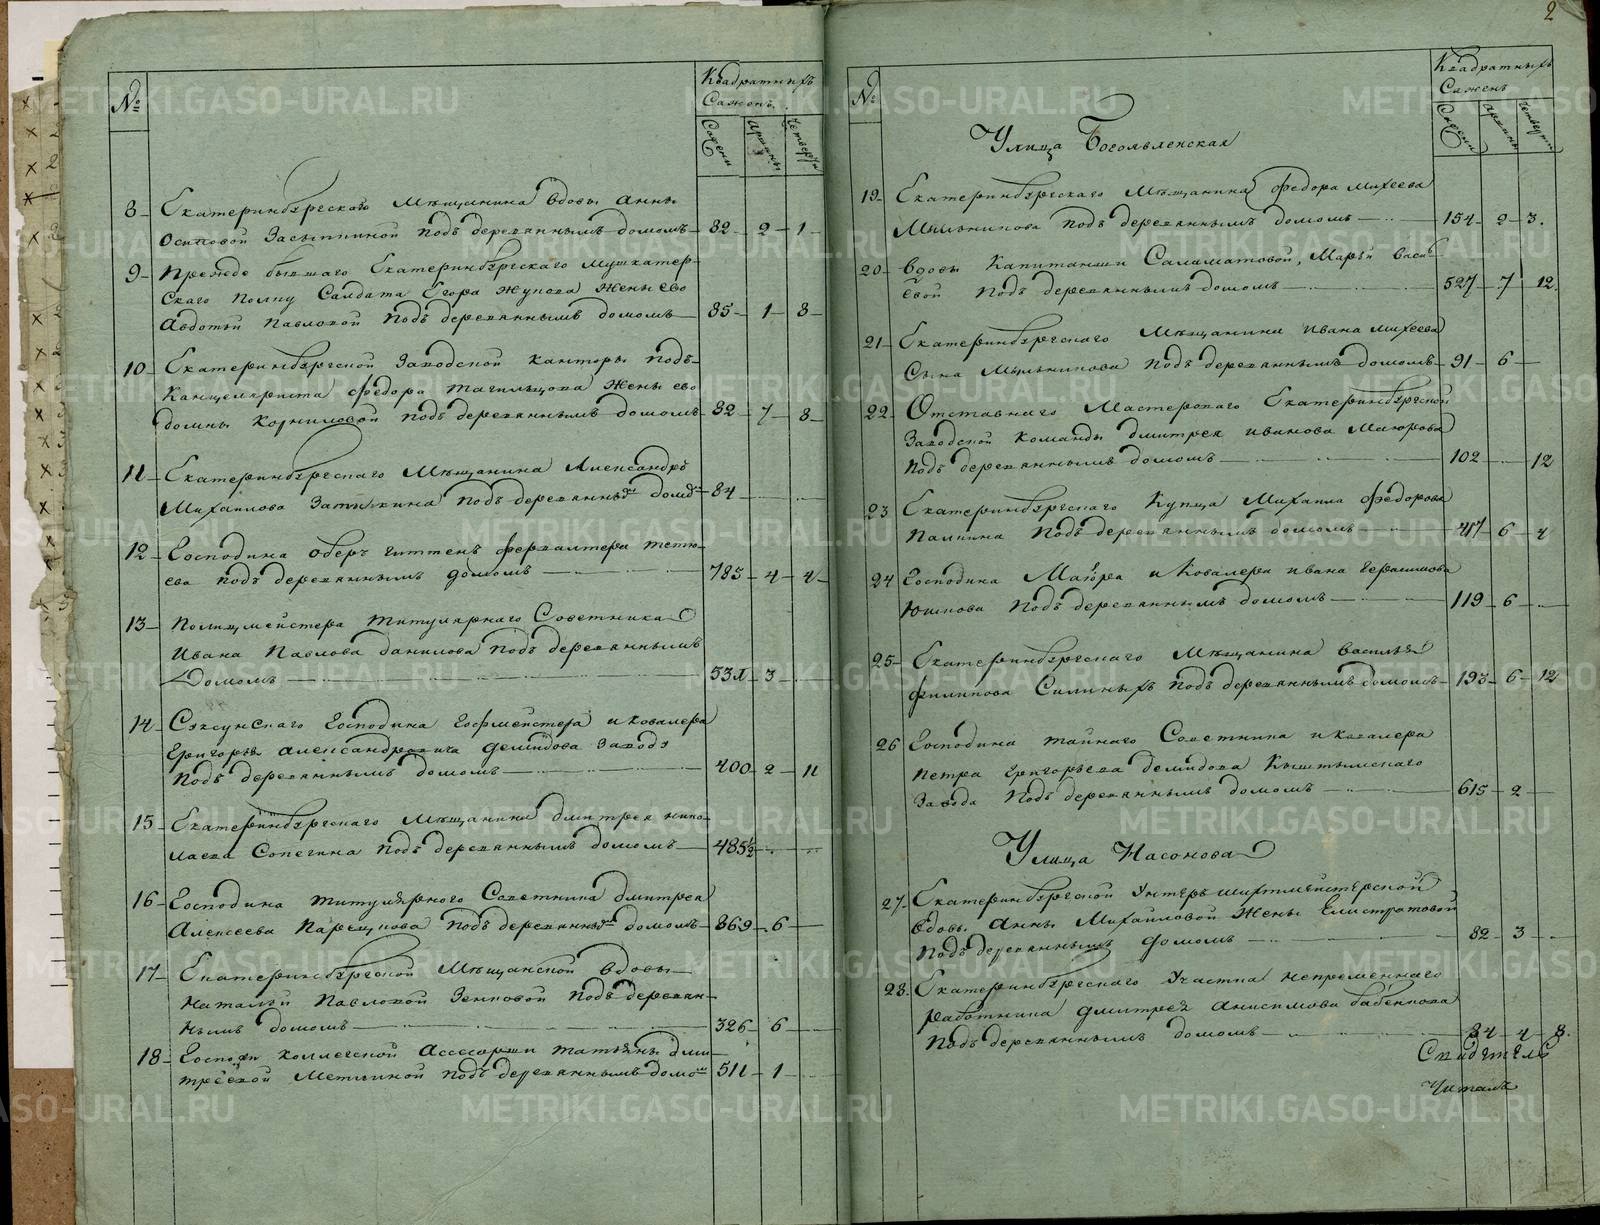 №
Квадратныхъ
Саженъ
Сажени
Аршины
Четверти
8 Екатеринбургскаго Мѣщанина вдовы Анны
Осиповой Засыпкиной подъ деревяннымъ домомъ 82 2 1
9 Прежде бывшаго Екатеринбургскаго Мушкатер-
скаго полку Салдата Егора Жукова жены ево
Авдотьи Павловой подъ деревяннымъ домомъ 85 1 8
10 Екатеринбургской Заводской канторы подъ-
канцеляриста Федора Тагильцова жены ево
домны Корниловой подъ деревяннымъ домомъ 82 7 8
11 Екатеринбургскаго Мѣщанина Александръ
Михаилова подъ деревяннымъ домомъ 84
12 Господина обер гиттенъ фервалтера
ева подъ деревяннымъ домомъ 785 4 4
13 Полицмейстера титулярнаго Советника
Ивана Павлова данилова подъ деревяннымъ
Домомъ 531 3
14 Суксунскаго Господина Гофмейстера и ковалера
Григорья александровича демидова Завода
Подъ деревяннымъ домомъ 400 2 11
15 Екатеринбургскаго Мѣщанина дмитрея нико-
лаева Сопегина подъ деревяннымъ домомъ 485½
16 Господина титулярнаго Советника дмитрея
Алексеева подъ деревяннымъ домомъ 869 6
17 Екатеринбургской Мѣщанской вдовы
Натальи Павловой Зенковой подъ деревян-
нымъ домомъ 326 6
18 Госпожи коллегской Асессорши татьяны дми-
треевой Метлиной подъ деревяннымъ домомъ 511 1
2
№
Квадратныхъ
Сажень
Сажени
Аршины
Четверти
Улица Богоявленская
19 Екатеринбургскаго Мѣщанина федора михеева
Мыльникова подъ деревяннымъ домомъ 154 2 3
20 вдовы Капитанши Саламатовой, Марьи васи-
евой подъ деревяннымъ домомъ 527 7 12
21 Екатеринбургскаго Мѣщанина ивана михеева
Сына Мыльникова подъ деревяннымъ домомъ 91 6
22 Отставнаго Мастерскаго Екатеринбургской
Заводской команды дмитрея иванова Маюрова
Подъ деревяннымъ домомъ 102 12
23 Екатеринбургскаго Купца Михаила федорова
Палкина Подъ деревяннымъ домомъ 417 6 4
24 Господина Маiора и Ковалера ивана герасимова
Юшкова Подъ деревяннымъ домомъ 119 6
25 Екатеринбургскаго Мѣщанина василья
филипова Силиныхъ Подъ деревяннымъ домомъ 193 6 12
26 Господина тайнаго Советника и ковалера
петра григорьева демидова Кыштымскаго
Завода Подъ деревяннымъ домомъ 615 2
Улица Насонова
27 Екатеринбургской унтеръ шихтмейстерской
вдовы Анны Михайловой жены Елистратовой
Подъ деревяннымъ домомъ 82 3
28 Екатеринбургскаго Участка непременнаго
работника дмитрея Анисимова бабенкова
Подъ деревяннымъ домомъ 84 4 8
Свидетель
Читалъ